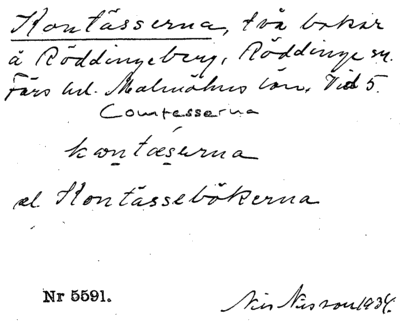 Kontässerna, två bokar
å Röddingeberg, Röddinge sn.
Färs hd. Malmöhus län, Vid 5.
Comtesserna
kontæserna
el. Kontässebökerna
Nr 5591.
Nils Nilsson 1934.